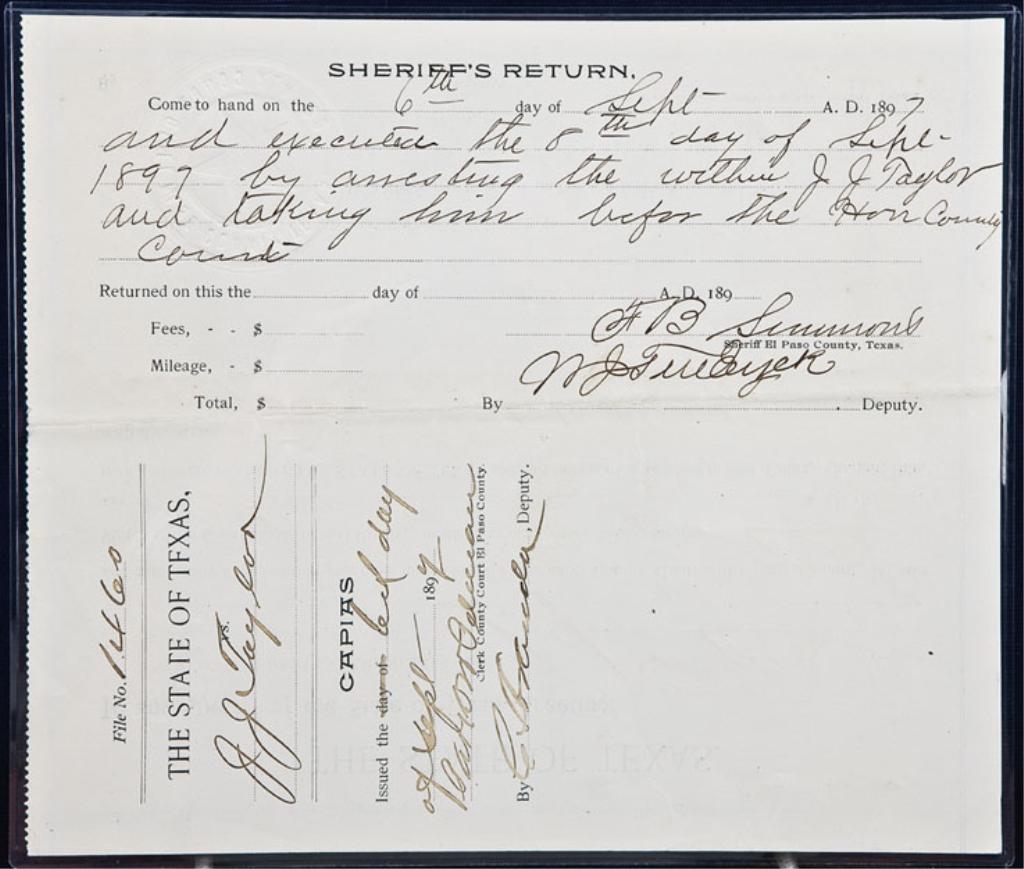 SHERIFF'S RETURN.
Come to hand on the 6th day of Sept A. D. 1897
and executed the 8th day of Sept
1897 by arresting the within J J Taylor
and taking him befor the Hon County
Court
Returned on this the day of A. D. 189
Fees, - - $
F B Simmons
Sheriff El Paso County, Texas.
Mileage, - $
W J
Total, $ By Deputy.
File No. 1460
THE STATE OF TEXAS,
vs.
J J Taylor
CAPIAS
Issued the day of day
of Sept 1897
Park
Clerk County Court El Paso County.
By , Deputy.